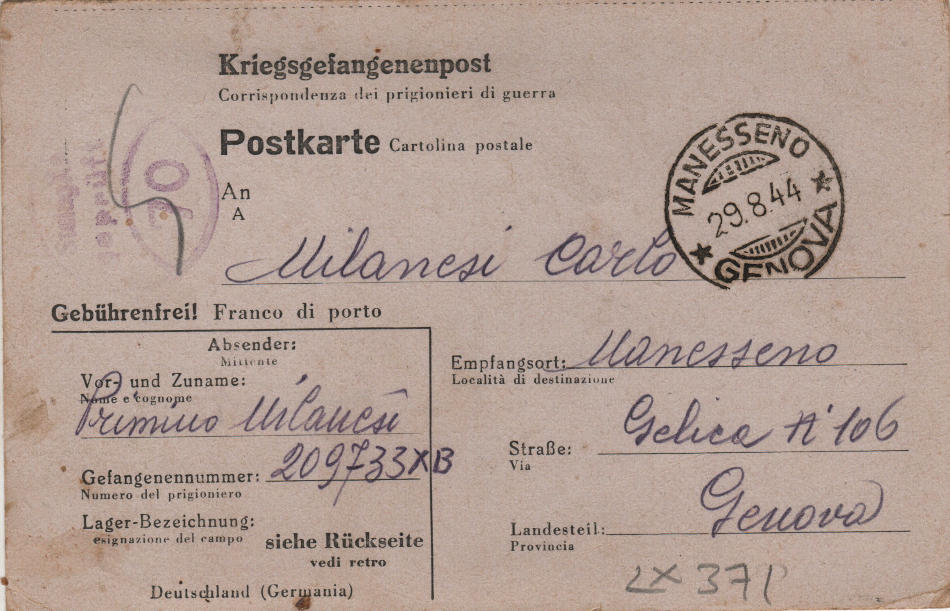 Kriegsgefangenenpost
Corrispondenza dei prigionieri di guerra
Postkarte Cartolina postale
MANESSENO
29.8.44
GENOVA
An
A
Milanesi Carlo
Gebührenfrei! Franco di porto
Absender:
Mittente
Vor- und Zuname:
Nome e cognome
Primino Milanesi
Gefangenennummer: 209733XB
Numero del prigioniero
Lager-Bezeichnung:
esignazione del campo
siehe Rückseite
vedi retro
Deutschland (Germania)
Empfangsort: Manesseno
Località di destinazione
Straße: Gelica N° 106
Via
Landesteil: Genova
Provincia